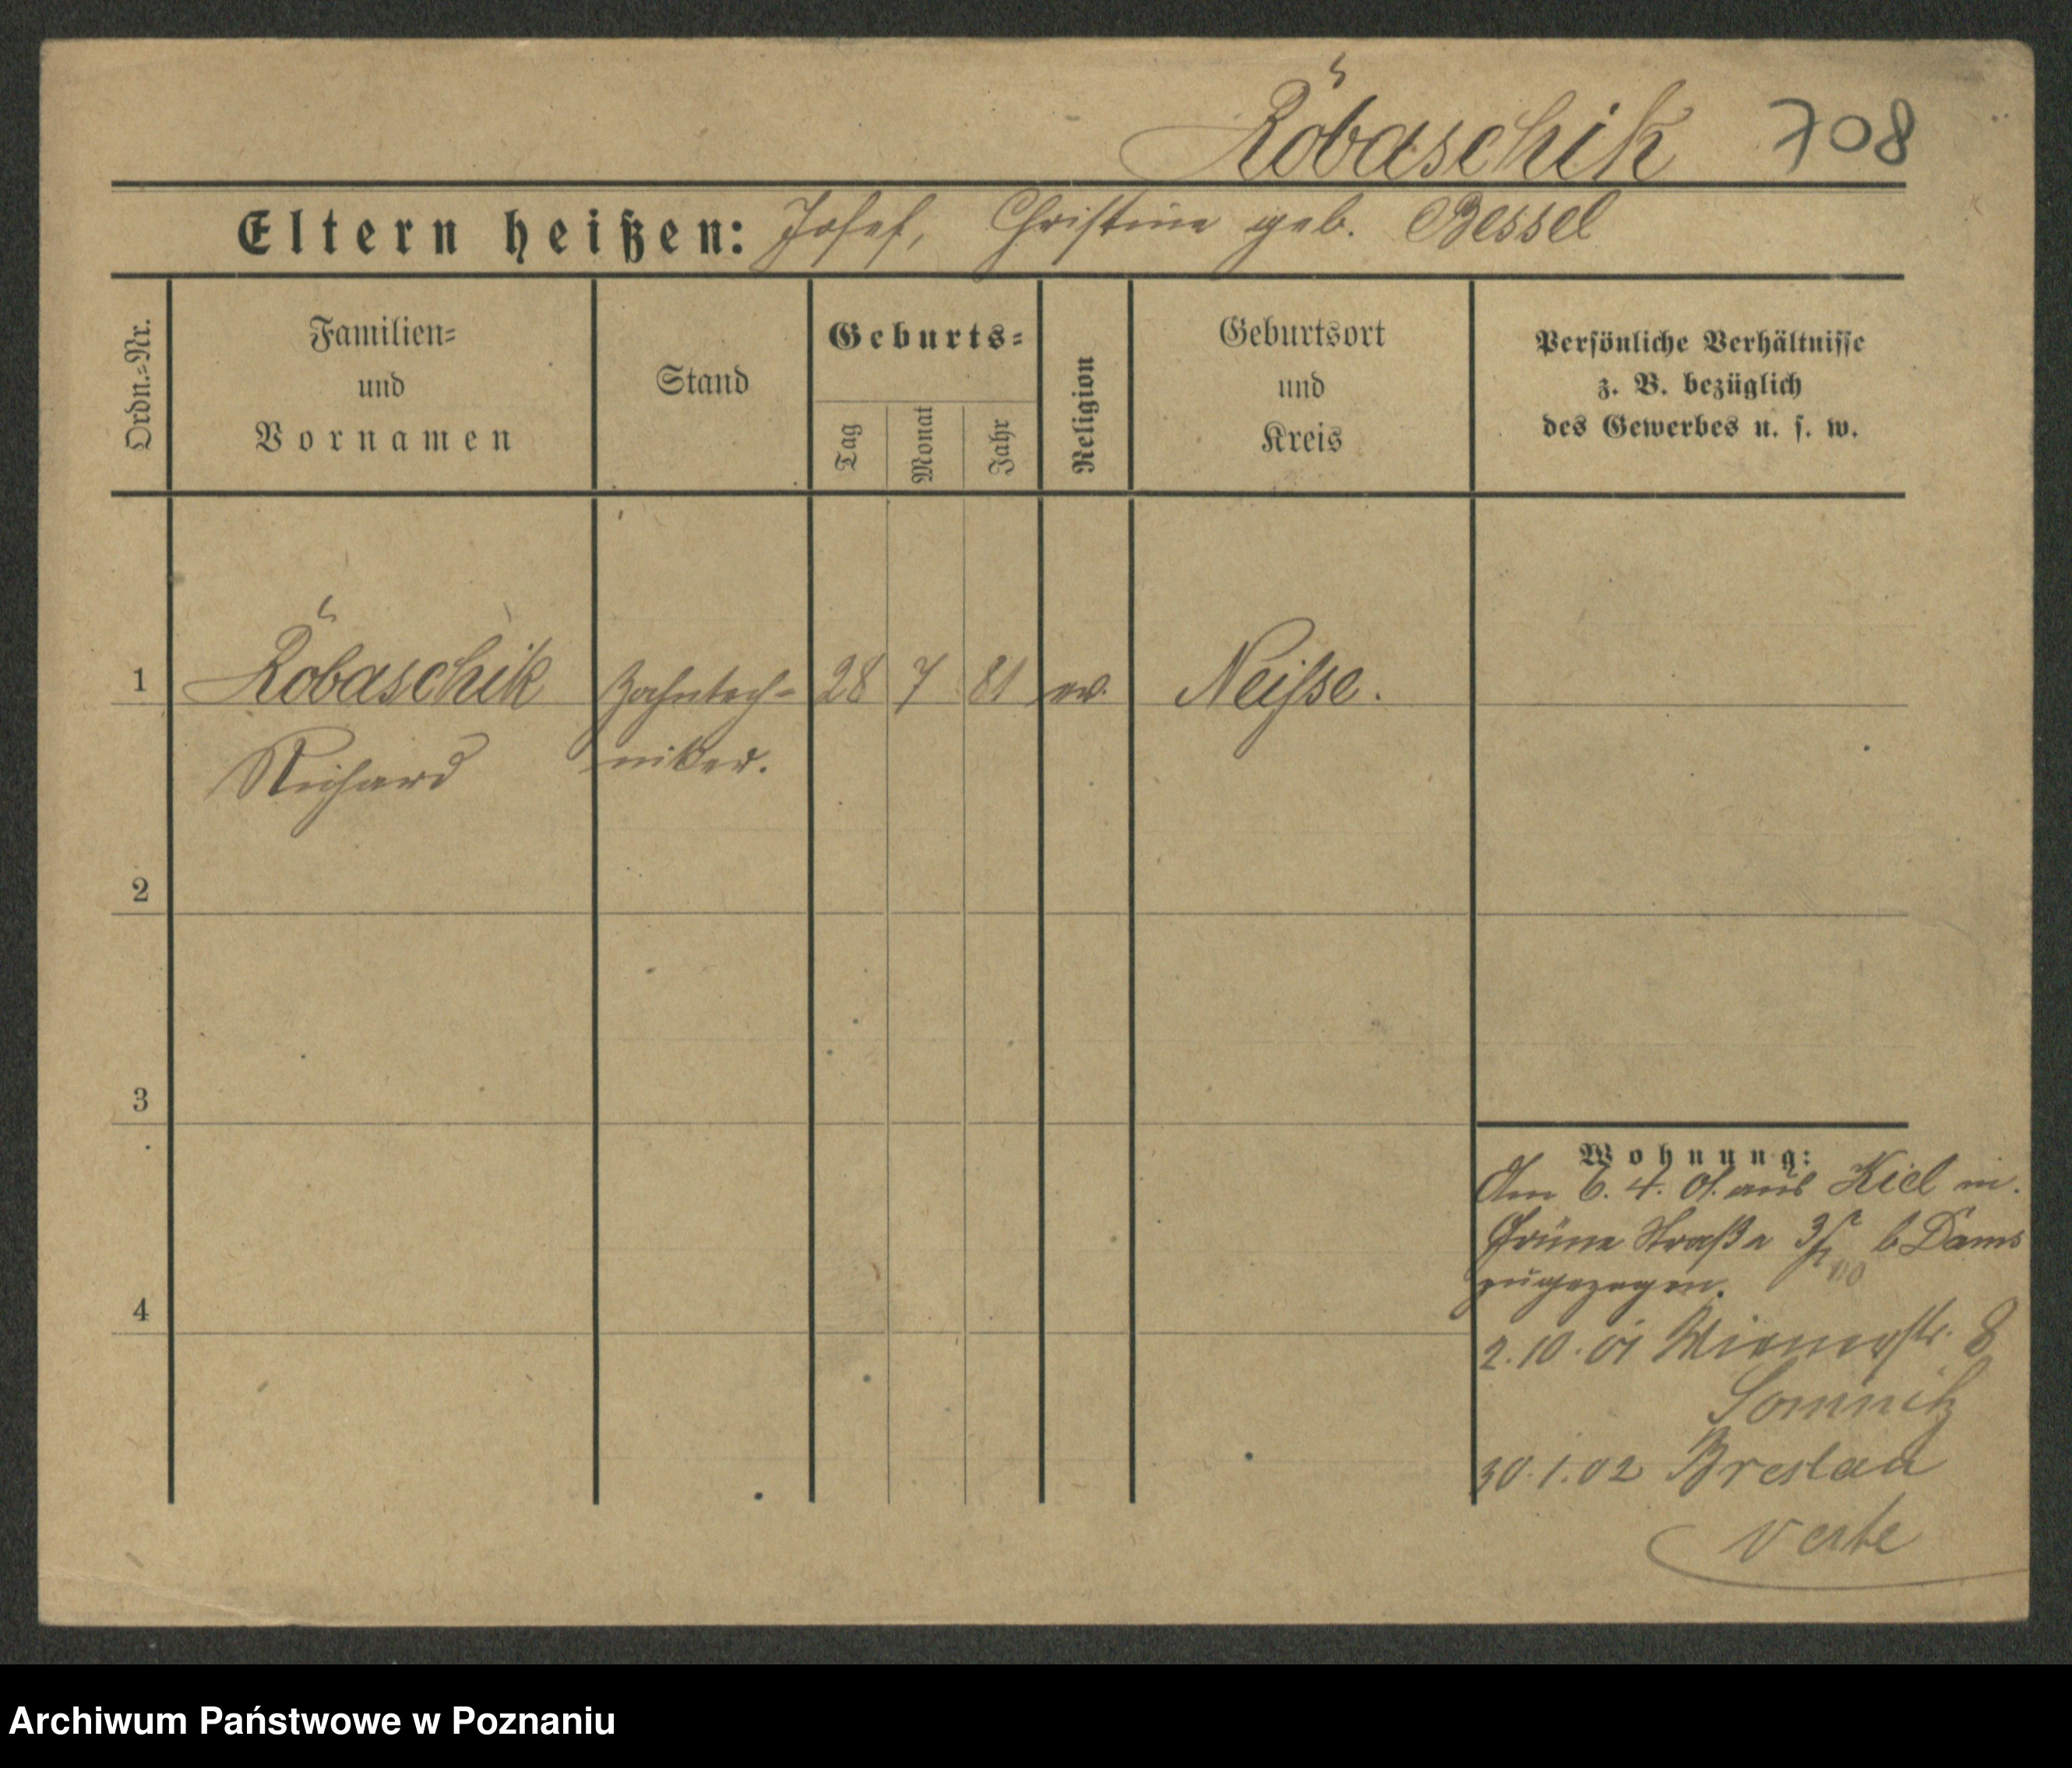 Röbaschik 708
Eltern heißen: Josef, Christine geb. Bessel
Ordn.-Nr.
Familien-
und
Vornamen
Stand
Geburts-
Tag
Monat
Jahr
Religion
Geburtsort
und
Kreis
Persönliche Verhältnisse
z. B. bezüglich
des Gewerbes u. s. w.
1 Röbaschik Zahntech- 28 7 81 ev. Neisse.
Richard niker.
2
3
4
Wohnung:
Am 6. 4. 01. aus Kiel in.
Grüne Straße 3 b Dams
zugezogen.
2.10.01 Wienerstr. 8
Somnitz
30.1.02 Breslau
verte
Archiwum Państwowe w Poznaniu